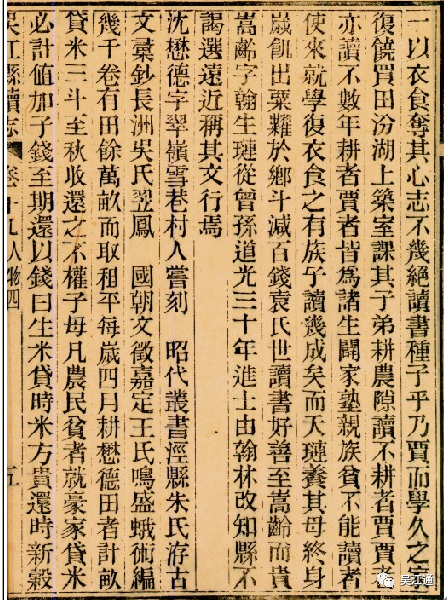 一以衣食奪其心志不幾絕讀書種子乎乃賈而學久之家
復饒買田汾湖上築室課其子弟耕農隙讀不耕者賈賈者
亦讀不數年耕者賈者皆為諸生闢家塾親族貧不能讀者
使來就學復衣食之有族子讀幾成矣而夭璉養其母終身
歲飢出粟糶於鄉斗減百錢袁氏世讀書好善至嵩齡而貴
嵩齡字翰生璉從曾孫道光三十年進士由翰林改知縣不
謁選遠近稱其文行焉
沈懋德字翠嶺雪巷村人嘗刻 昭代叢書涇縣朱氏洊古
文彙鈔長洲吳氏翌鳳 國朝文徵嘉定王氏鳴盛蛾術編
幾千卷有田餘萬畝而取租平每歲四月耕懋德田者計畝
貸米二斗至秋收還之不權子母凡農民貧者就豪家貸米
必計值加子錢至期還以錢曰生米貸時米方貴還時新穀
吳江縣續志 卷十九人物四 五
吴江通